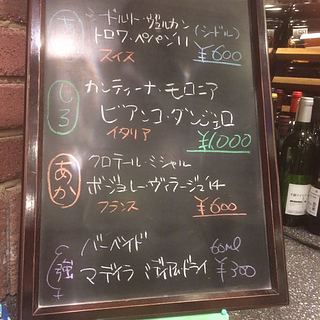 シードルト・ヴルカン
トロワ・ペパン11 (シードル)
スイス ¥600
しろ
カンティーナ・モロニア
ビアンコ・ダンジェロ
イタリア ¥1000
あか
クロテール・ミシャル
ボジョレー・ヴィラージュ14
フランス ¥600
強
バーベイド 60ml
マデイラ ドライ ¥300